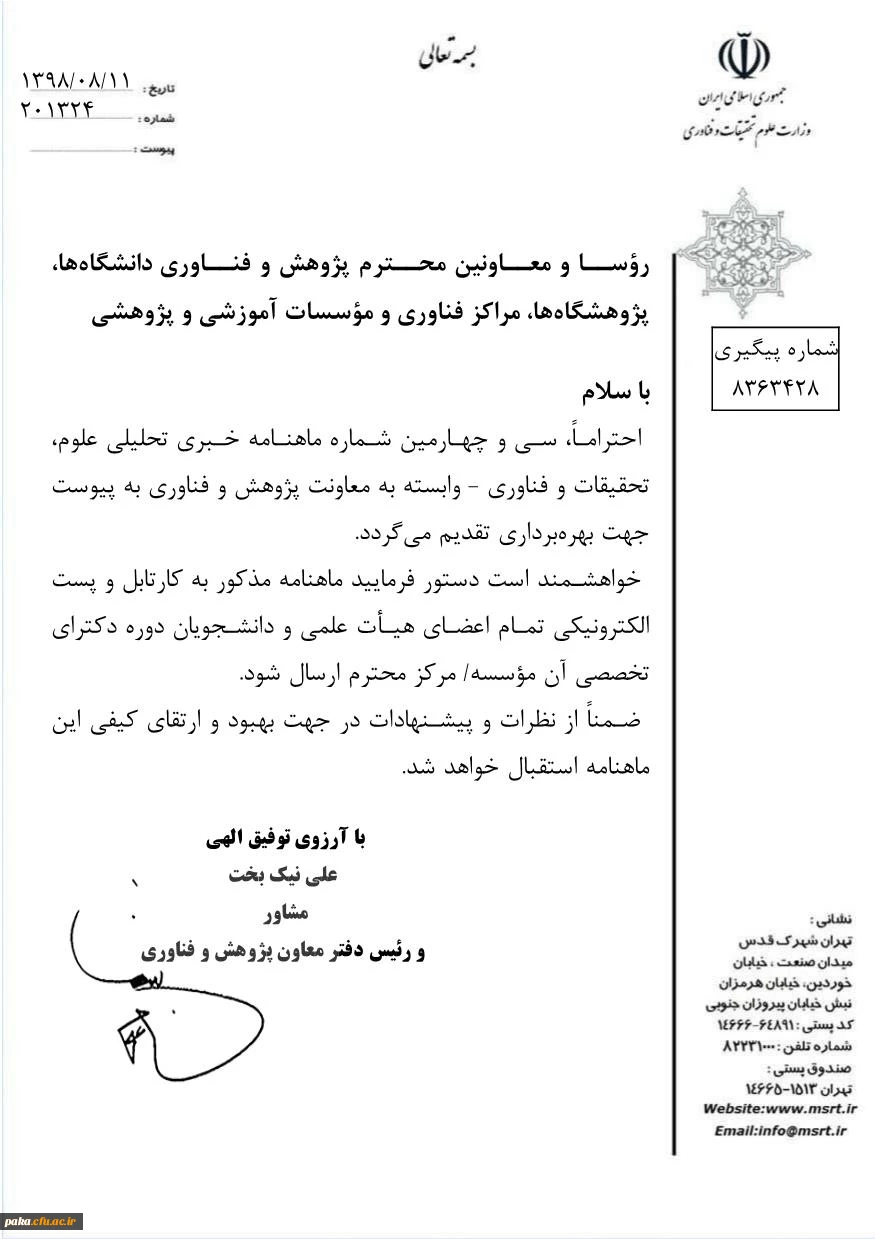 بسمه تعالی
جمهوری اسلامی ایران
وزارت علوم تحقیقات و فناوری
تاریخ : ۱۳۹۸/۰۸/۱۱
شماره : ۲۰۱۳۲۴
پیوست :
رؤسا و معاونین محترم پژوهش و فناوری دانشگاه‌ها،
پژوهشگاه‌ها، مراکز فناوری و مؤسسات آموزشی و پژوهشی
شماره پیگیری
۸۳۶۳۴۲۸
با سلام
احتراماً، سی و چهارمین شماره ماهنامه خبری تحلیلی علوم،
تحقیقات و فناوری – وابسته به معاونت پژوهش و فناوری به پیوست
جهت بهره‌برداری تقدیم می‌گردد.
خواهشمند است دستور فرمایید ماهنامه مذکور به کارتابل و پست
الکترونیکی تمام اعضای هیأت علمی و دانشجویان دوره دکترای
تخصصی آن مؤسسه/ مرکز محترم ارسال شود.
ضمناً از نظرات و پیشنهادات در جهت بهبود و ارتقای کیفی این
ماهنامه استقبال خواهد شد.
با آرزوی توفیق الهی
علی نیک بخت
مشاور
و رئیس دفتر معاون پژوهش و فناوری
نشانی :
تهران شهرک قدس
میدان صنعت ، خیابان
خوردین، خیابان هرمزان
نبش خیابان پیروزان جنوبی
کد پستی : ۱٤۶۶۶-۶٤۸۹۱
شماره تلفن : ۸۲۲۳۱۰۰۰
صندوق پستی :
تهران ۱۵۱۳-۱٤۶۶۵
Website:www.msrt.ir
Email:info@msrt.ir
paka.cfu.ac.ir